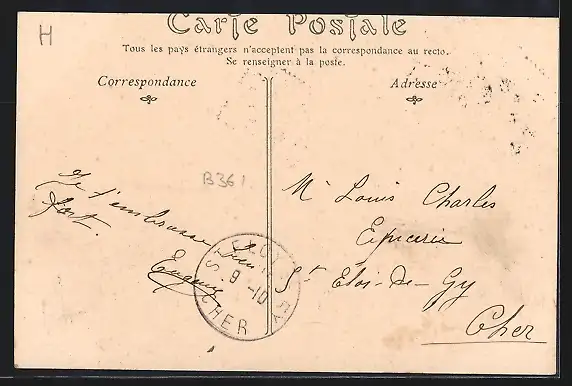 H
Carte Postale
Tous les pays étrangers n'acceptent pas la correspondance au recto.
Se renseigner à la poste.
Correspondance
Adresse
B361
Je t'embrasse
fort.
Eugène
Mr Louis Charles
Epicerie
St Eloi-De-Gy
Cher
ST ELOY DE GY
9 -10
CHER